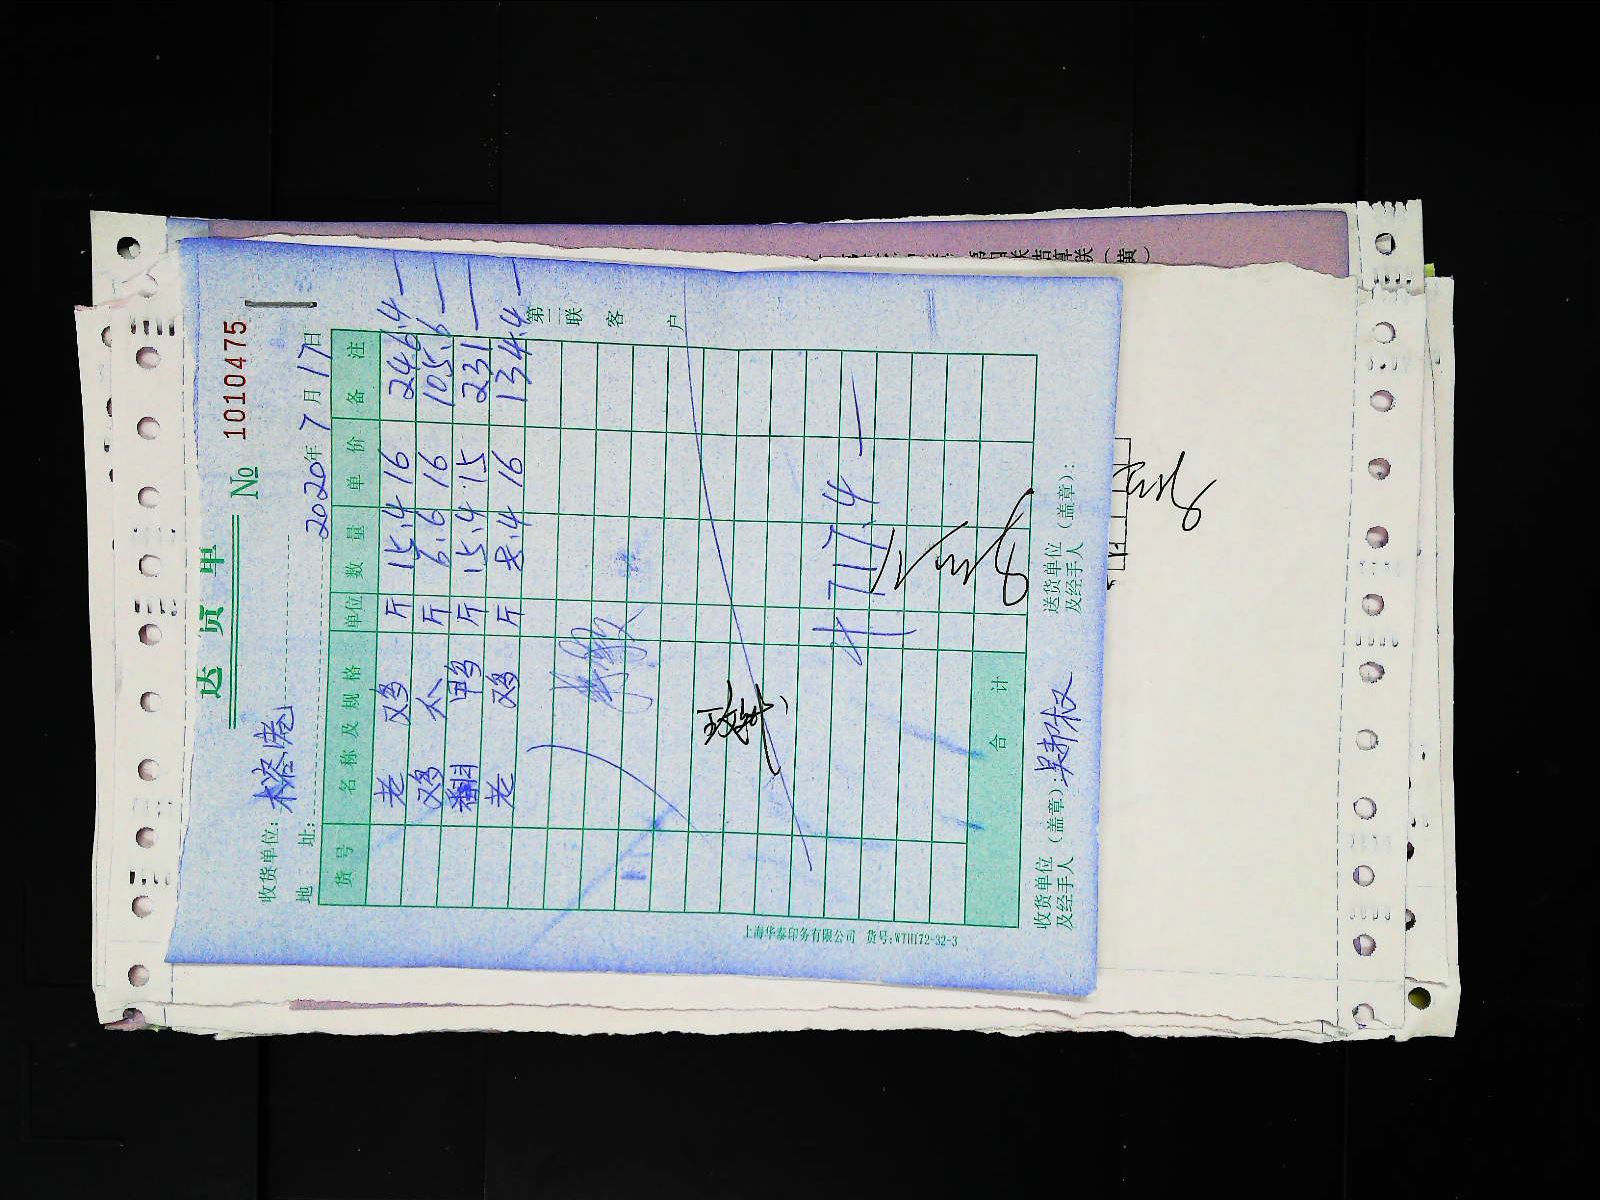 送货单
№ 1010475
收货单位: 榕港
地 址:
2020年7月17日
货号 名称及规格 单位 数量 单价 备注
老鸡 斤 15.4 16 246.4
鸡个 斤 6.6 16 105.6
翻鸭 斤 15.4 15 231
老鸡 斤 8.4 16 134.4
717.4
合 计
收货单位
及经手人(盖章):
送货单位
及经手人(盖章):
第二联 客户
上海华泰印务有限公司 货号:WTH172-32-3
(黄)